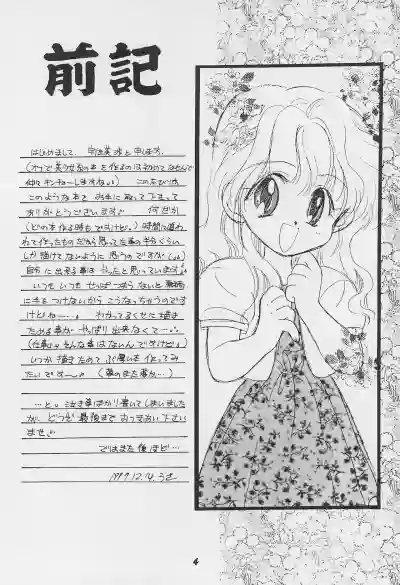 前記
はじめまして、宇佐美渉と申します。
(オトナで美少女系の本を作るのは初めてなもんで
仲々キンチョーしますねぃ) このたびは
このような本を お手に取って下さって
ありがとうございます 何だか
(どの本作る時もですけど。) 時間に追わ
れて作ったものだから思ってた事の半分くらい
しか描けてないように思うのですが(。。)
自分に出来る事は やったと思っています
いつも いつも せっぱつまらないと
に手をつけないから こうなっちゃうのです
けどね……。 わかってるくせに描き
ためる事が やっぱり出来なくて…。
(仕事はそんな事はないんですけど)
いつか描きためて ぶ厚い本作ってみ
たいでーす (夢のまた夢か…)
…と。泣き事ばかり書いてしまいました
が、どうぞ最後までおつきあい下さい
ませ
ではまた後ほど…
1997.12.4. うさ
4